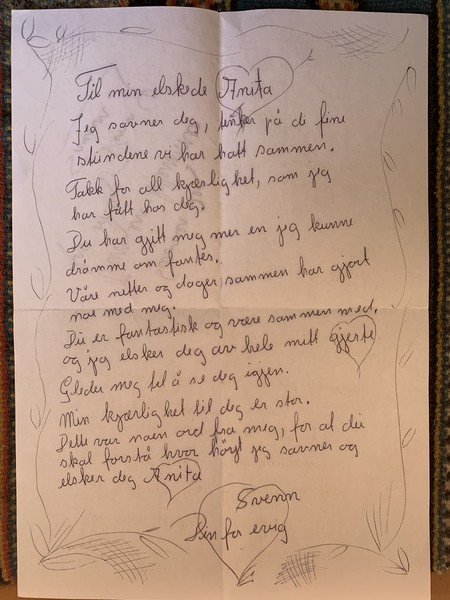 Til min elskede Anita
Jeg savner deg, tenker på de fine
stundene vi har hatt sammen.
Takk for all kjærlighet, som jeg
har fått hos deg.
Du har gjitt meg mer en jeg kunne
drømme om fantes.
Våre netter og dager sammen har gjort
noe med meg.
Du er fantastisk og være sammen med,
og jeg elsker deg av hele mitt gjerte
Gleder meg til å se deg igjen.
Min kjærlighet til deg er stor.
Dette var noen ord fra meg, for at du
skal forstå hvor høyt jeg savner og
elsker deg Anita
Svenn
Din for evig